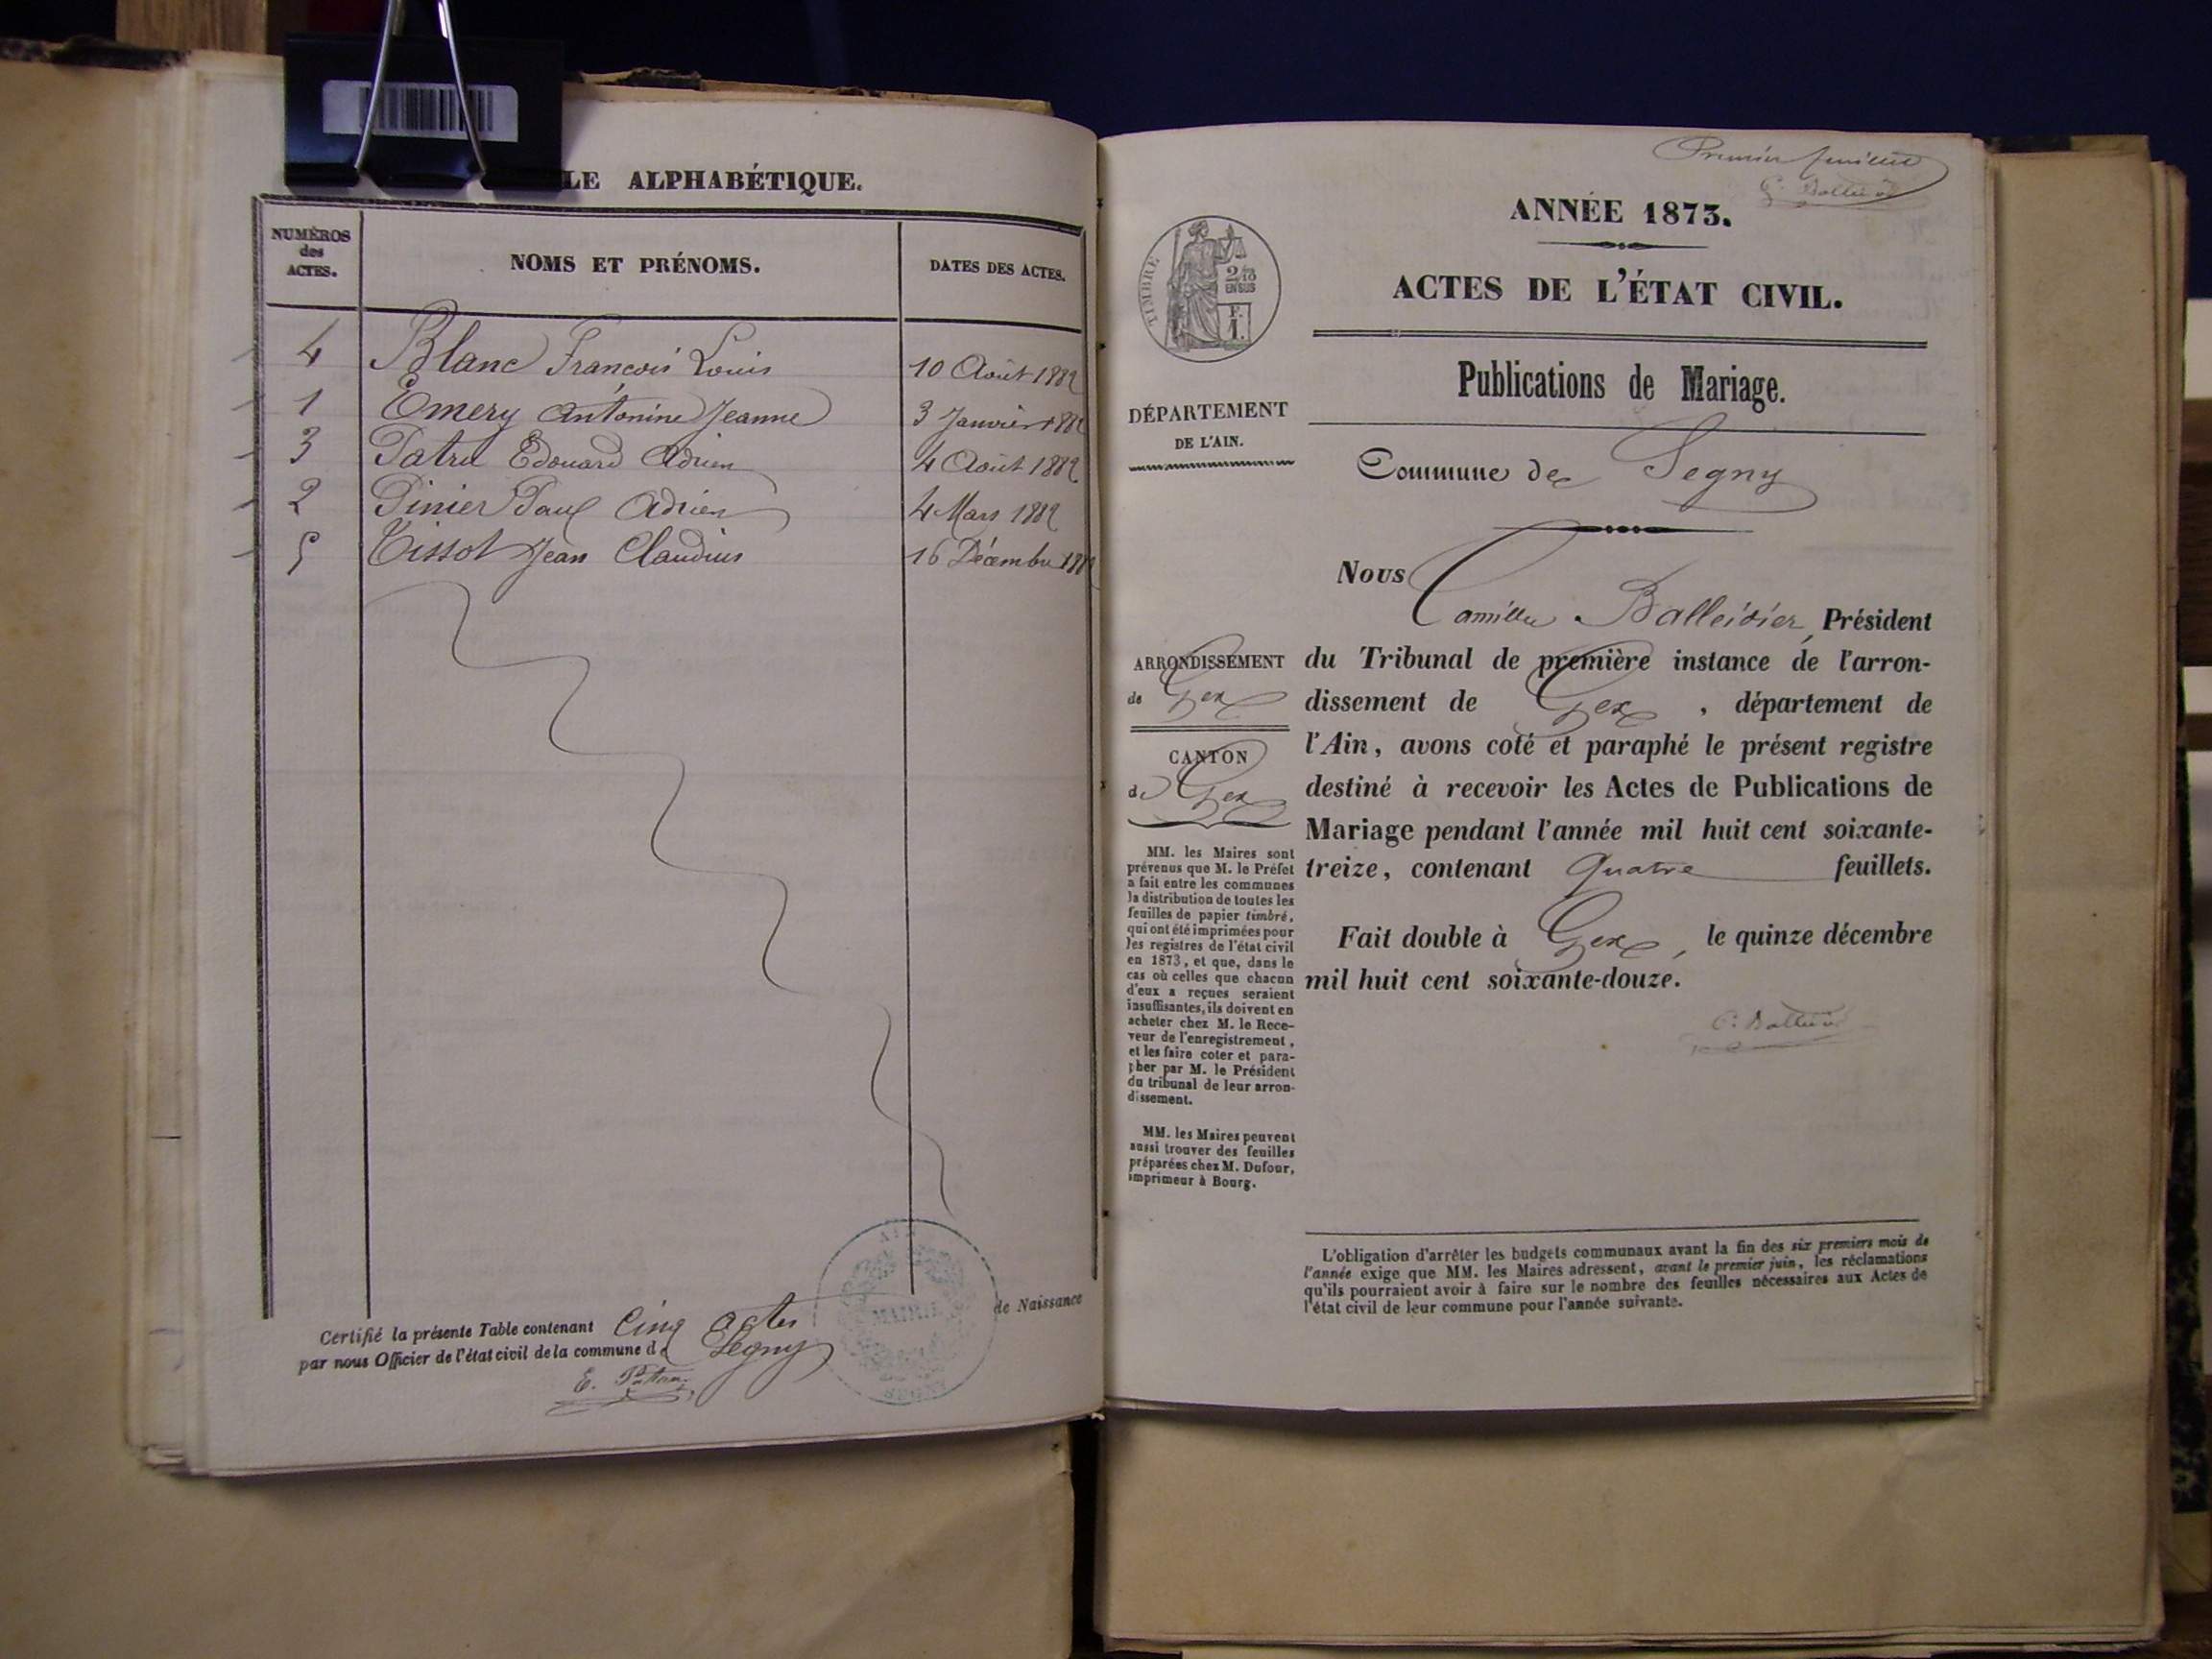 LE ALPHABÉTIQUE.
NUMÉROS des ACTES.
NOMS ET PRÉNOMS.
DATES DES ACTES.
4 Blanc François Louis 10 Août 1882
1 Emery Antonine Jeanne 3 Janvier 1882
3 Patru Edouard Adrien 4 Août 1882
2 Pinier Paul Adrien 4 Mars 1882
5 Tissot Jean Claudius 16 Décembre 1882
Certifié la présente Table contenant Cinq actes de Naissance
par nous Officier de l'état civil de la commune de Segny
E.
MAIRIE
Premier feuillet
ANNÉE 1873.
ACTES DE L'ÉTAT CIVIL.
TIMBRE
2/10
EN SUS
F.
1.
Publications de Mariage.
DÉPARTEMENT
DE L'AIN.
Commune de Segny
Nous
Camille Balleidier, Président
du Tribunal de première instance de l'arron-
dissement de Gex, département de
l'Ain, avons coté et paraphé le présent registre
destiné à recevoir les Actes de Publications de
Mariage pendant l'année mil huit cent soixante-
treize, contenant Quatre feuillets.
Fait double à Gex, le quinze décembre
mil huit cent soixante-douze.
ARRONDISSEMENT
de Gex
CANTON
de Gex
MM. les Maires sont
prévenus que M. le Préfet
a fait entre les communes
la distribution de toutes les
feuilles de papier timbré,
qui ont été imprimées pour
les registres de l'état civil
en 1873, et que, dans le
cas où celles que chacun
d'eux a reçues seraient
insuffisantes, ils doivent en
acheter chez M. le Rece-
veur de l'enregistrement,
et les faire coter et para-
pher par M. le Président
du tribunal de leur arron-
dissement.
MM. les Maires peuvent
aussi trouver des feuilles
préparées chez M. Dufour,
imprimeur à Bourg.
L'obligation d'arrêter les budgets communaux avant la fin des six premiers mois de
l'année exige que MM. les Maires adressent, avant le premier juin, les réclamations
qu'ils pourraient avoir à faire sur le nombre des feuilles nécessaires aux Actes de
l'état civil de leur commune pour l'année suivante.